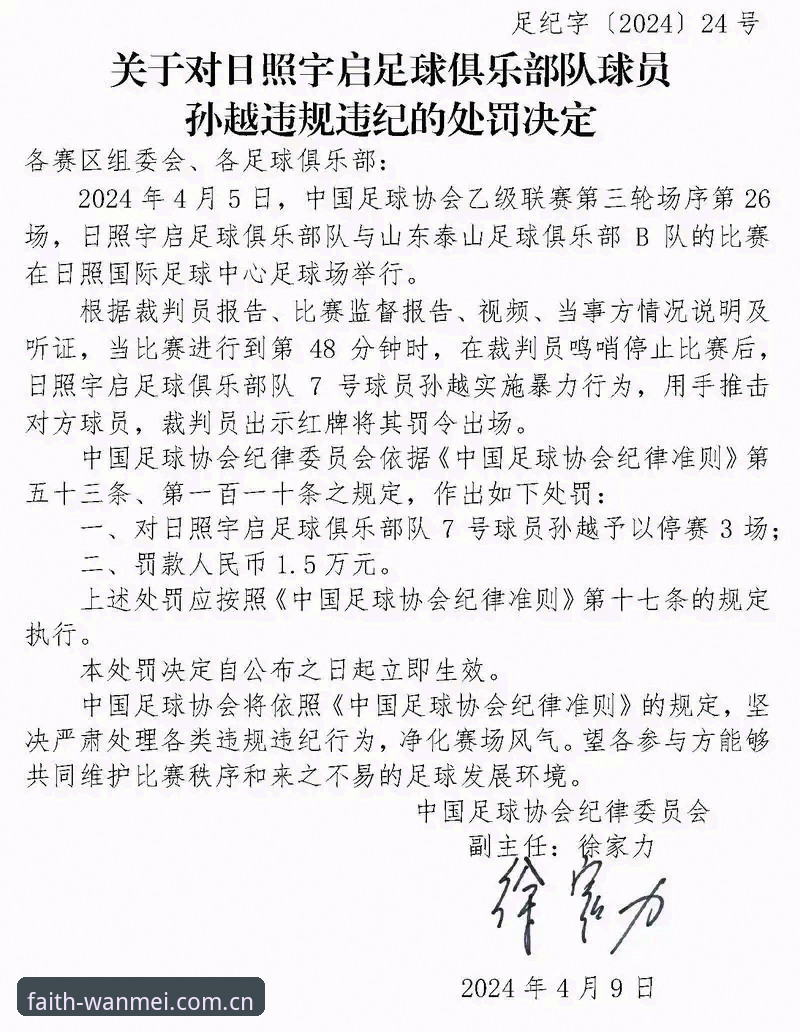 足纪字〔2024〕24 号
关于对日照宇启足球俱乐部队球员
孙越违规违纪的处罚决定
各赛区组委会、各足球俱乐部：
2024 年 4 月 5 日，中国足球协会乙级联赛第三轮场序第 26
场，日照宇启足球俱乐部队与山东泰山足球俱乐部 B 队的比赛
在日照国际足球中心足球场举行。
根据裁判员报告、比赛监督报告、视频、当事方情况说明及
听证，当比赛进行到第 48 分钟时，在裁判员鸣哨停止比赛后，
日照宇启足球俱乐部队 7 号球员孙越实施暴力行为，用手推击
对方球员，裁判员出示红牌将其罚令出场。
中国足球协会纪律委员会依据《中国足球协会纪律准则》第
五十三条、第一百一十条之规定，作出如下处罚：
一、对日照宇启足球俱乐部队 7 号球员孙越予以停赛 3 场；
二、罚款人民币 1.5 万元。
上述处罚应按照《中国足球协会纪律准则》第十七条的规定
执行。
本处罚决定自公布之日起立即生效。
中国足球协会将依照《中国足球协会纪律准则》的规定，坚
决严肃处理各类违规违纪行为，净化赛场风气。望各参与方能够
共同维护比赛秩序和来之不易的足球发展环境。
中国足球协会纪律委员会
副主任：徐家力
徐家力
2024 年 4 月 9 日
faith-wanmei.com.cn